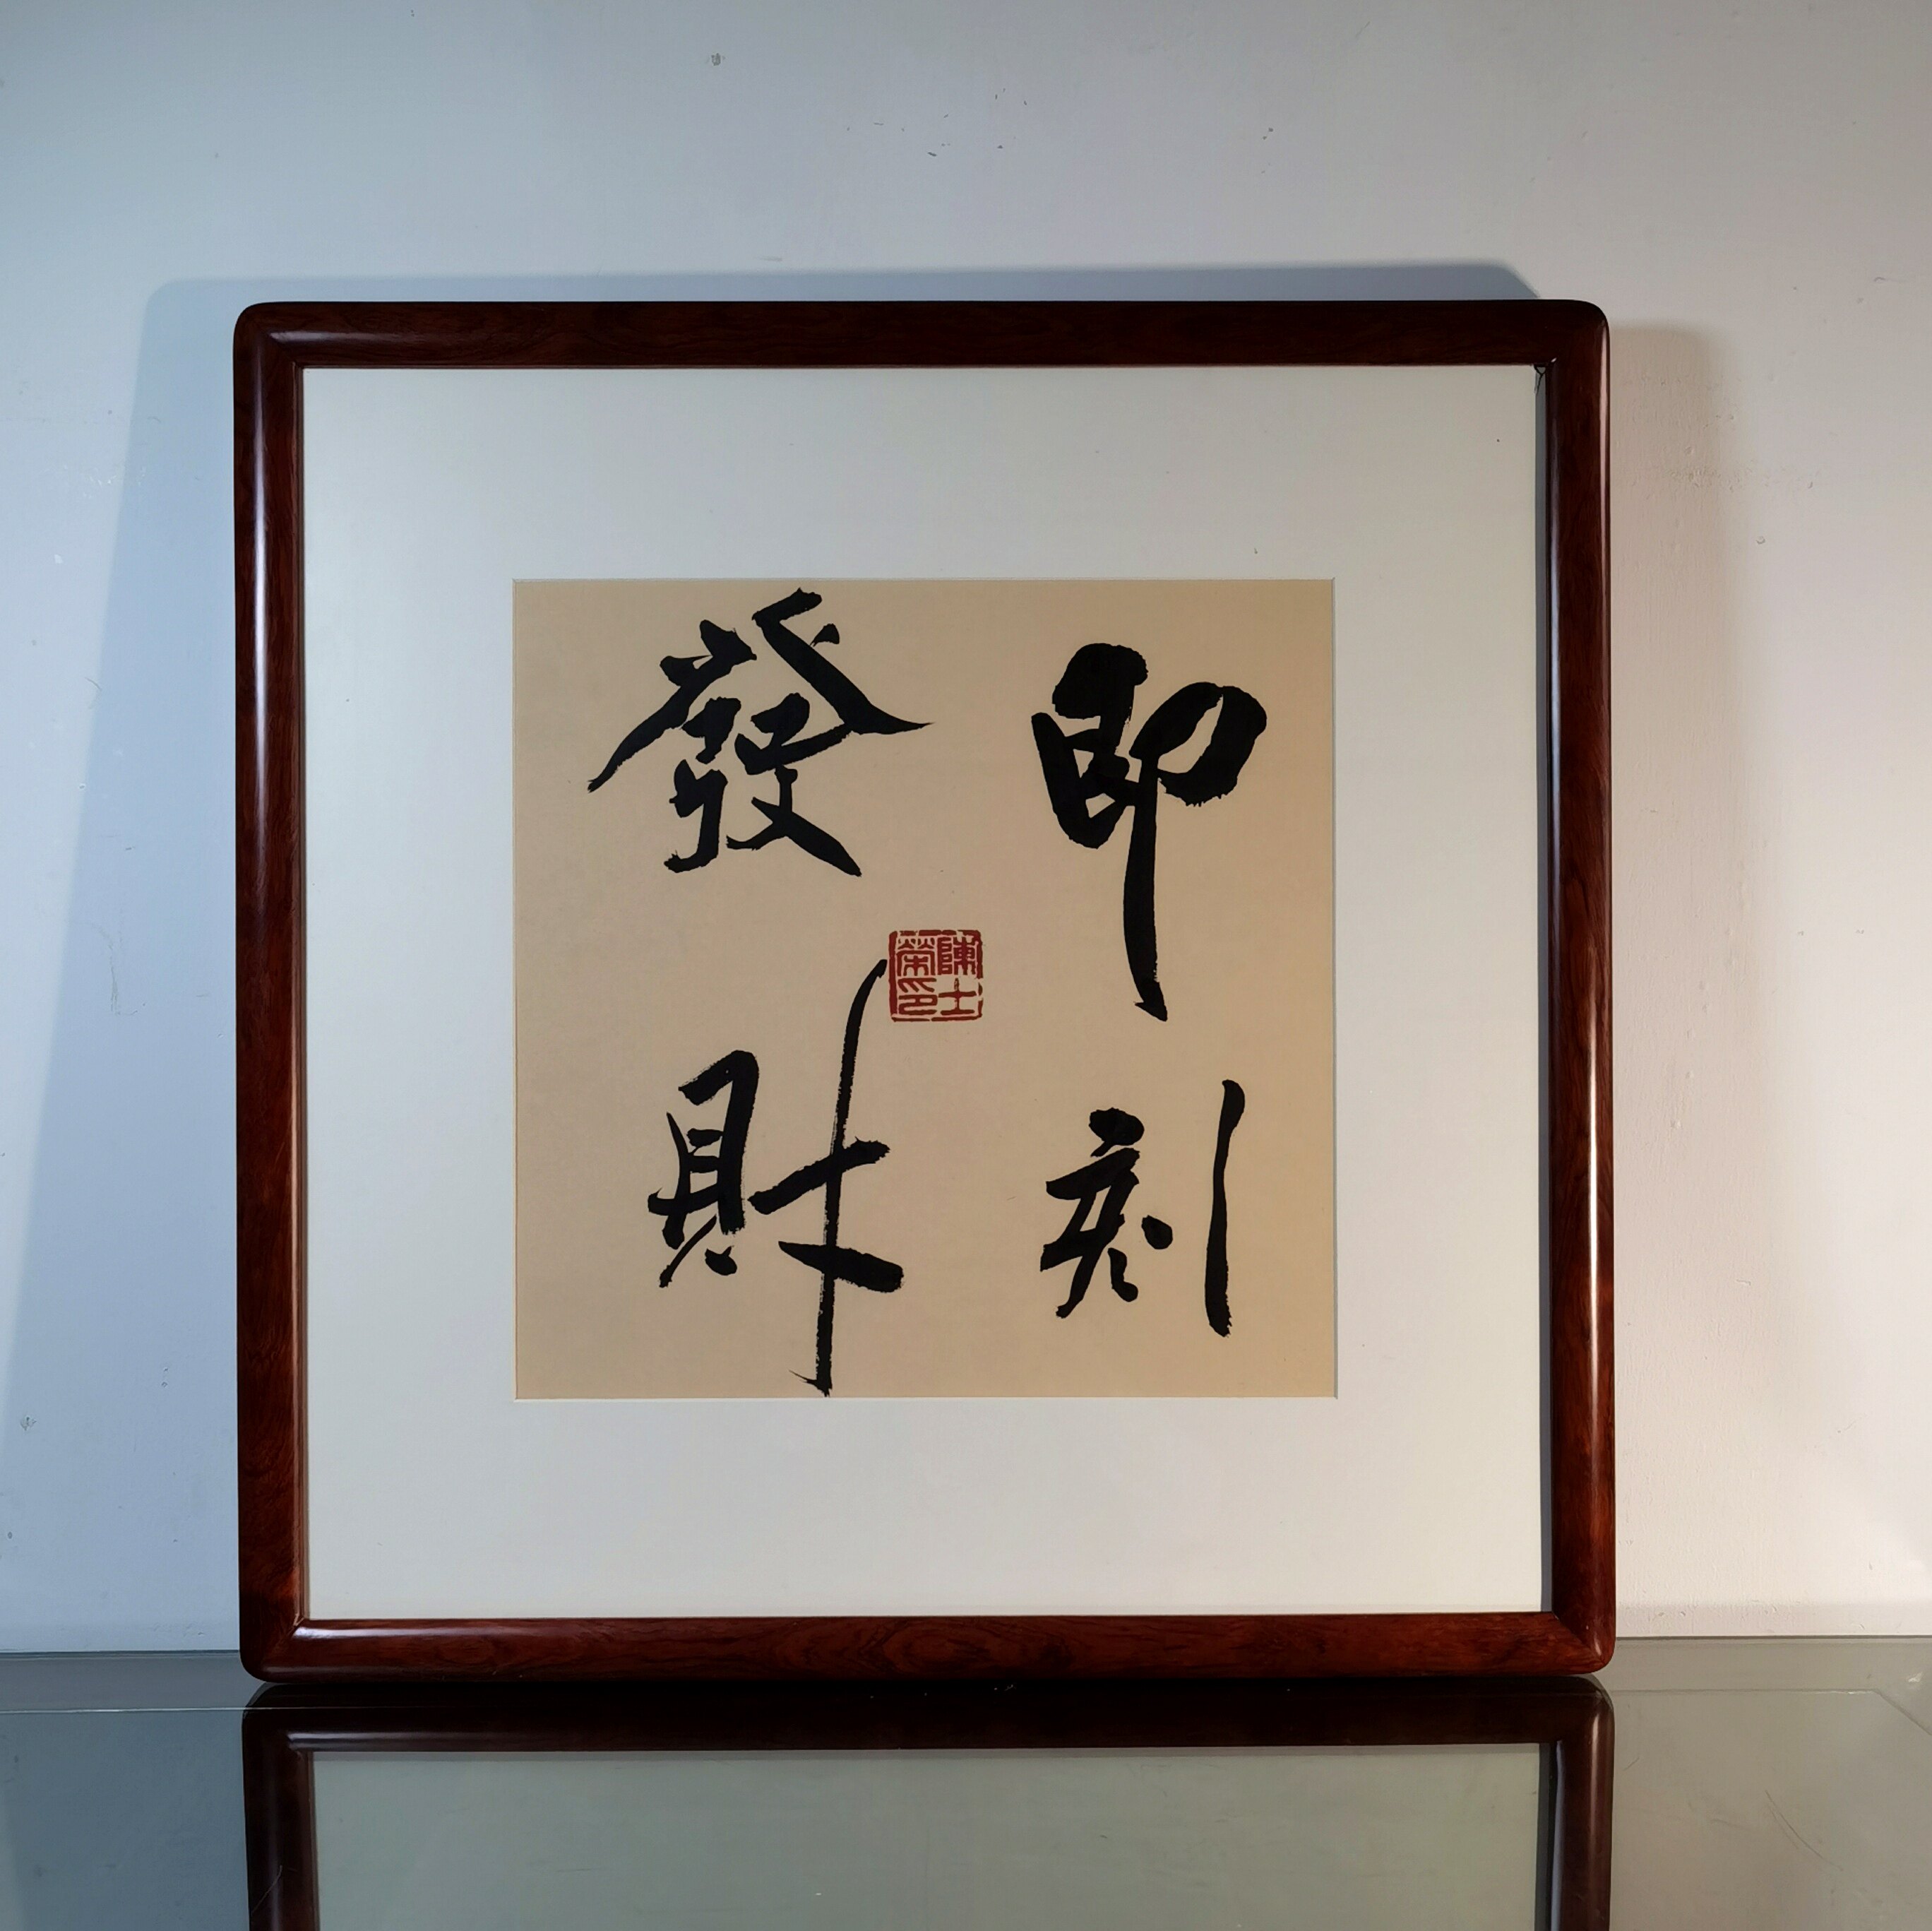 即刻
發財
陳士
榮印